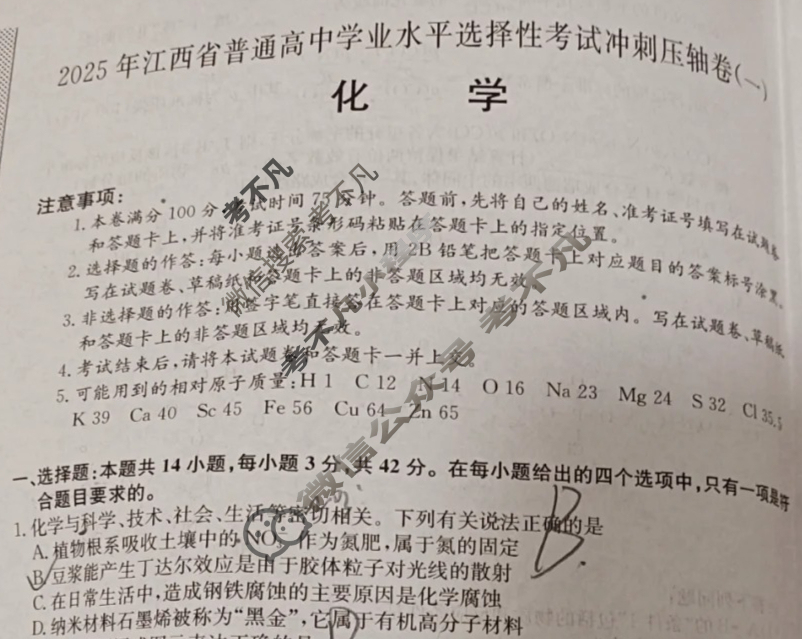 2025年江西省普通高中学业水平选择性考试冲刺压轴卷(一)
化 学
注意事项:
1.本卷满分100分,考试时间75分钟。答题前,先将自己的姓名、准考证号填写在试题卷
和答题卡上,并将准考证号条形码粘贴在答题卡上的指定位置。
2.选择题的作答:每小题选出答案后,用2B铅笔把答题卡上对应题目的答案标号涂黑。
写在试题卷、草稿纸和答题卡上的非答题区域均无效。
3.非选择题的作答:用签字笔直接答在答题卡上对应的答题区域内。写在试题卷、草稿纸
和答题卡上的非答题区域均无效。
4.考试结束后,请将本试题卷和答题卡一并上交。
5.可能用到的相对原子质量:H 1 C 12 N 14 O 16 Na 23 Mg 24 S 32 Cl 35.5
K 39 Ca 40 Sc 45 Fe 56 Cu 64 Zn 65
一、选择题:本题共14小题,每小题3分,共42分。在每小题给出的四个选项中,只有一项是符
合题目要求的。
1.化学与科学、技术、社会、生活等密切相关。下列有关说法正确的是
A.植物根系吸收土壤中的NO₃⁻作为氮肥,属于氮的固定
B.豆浆能产生丁达尔效应是由于胶体粒子对光线的散射
C.在日常生活中,造成钢铁腐蚀的主要原因是化学腐蚀
D.纳米材料石墨烯被称为“黑金”,它属于有机高分子材料
B
考不凡
微信搜索考不凡
考不凡
微信公众号 考不凡